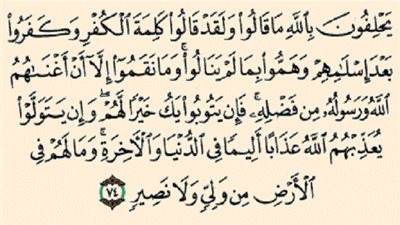 يَحْلِفُونَ بِٱللَّهِ مَا قَالُوا۟ وَلَقَدْ قَالُوا۟ كَلِمَةَ ٱلْكُفْرِ وَكَفَرُوا۟
بَعْدَ إِسْلَٰمِهِمْ وَهَمُّوا۟ بِمَا لَمْ يَنَالُوا۟ ۚ وَمَا نَقَمُوٓا۟ إِلَّآ أَنْ أَغْنَىٰهُمُ
ٱللَّهُ وَرَسُولُهُۥ مِن فَضْلِهِۦ ۚ فَإِن يَتُوبُوا۟ يَكُ خَيْرًا لَّهُمْ ۖ وَإِن يَتَوَلَّوْا۟
يُعَذِّبْهُمُ ٱللَّهُ عَذَابًا أَلِيمًا فِى ٱلدُّنْيَا وَٱلْءَاخِرَةِ ۚ وَمَا لَهُمْ فِى
ٱلْأَرْضِ مِن وَلِىٍّ وَلَا نَصِيرٍ ٧٤